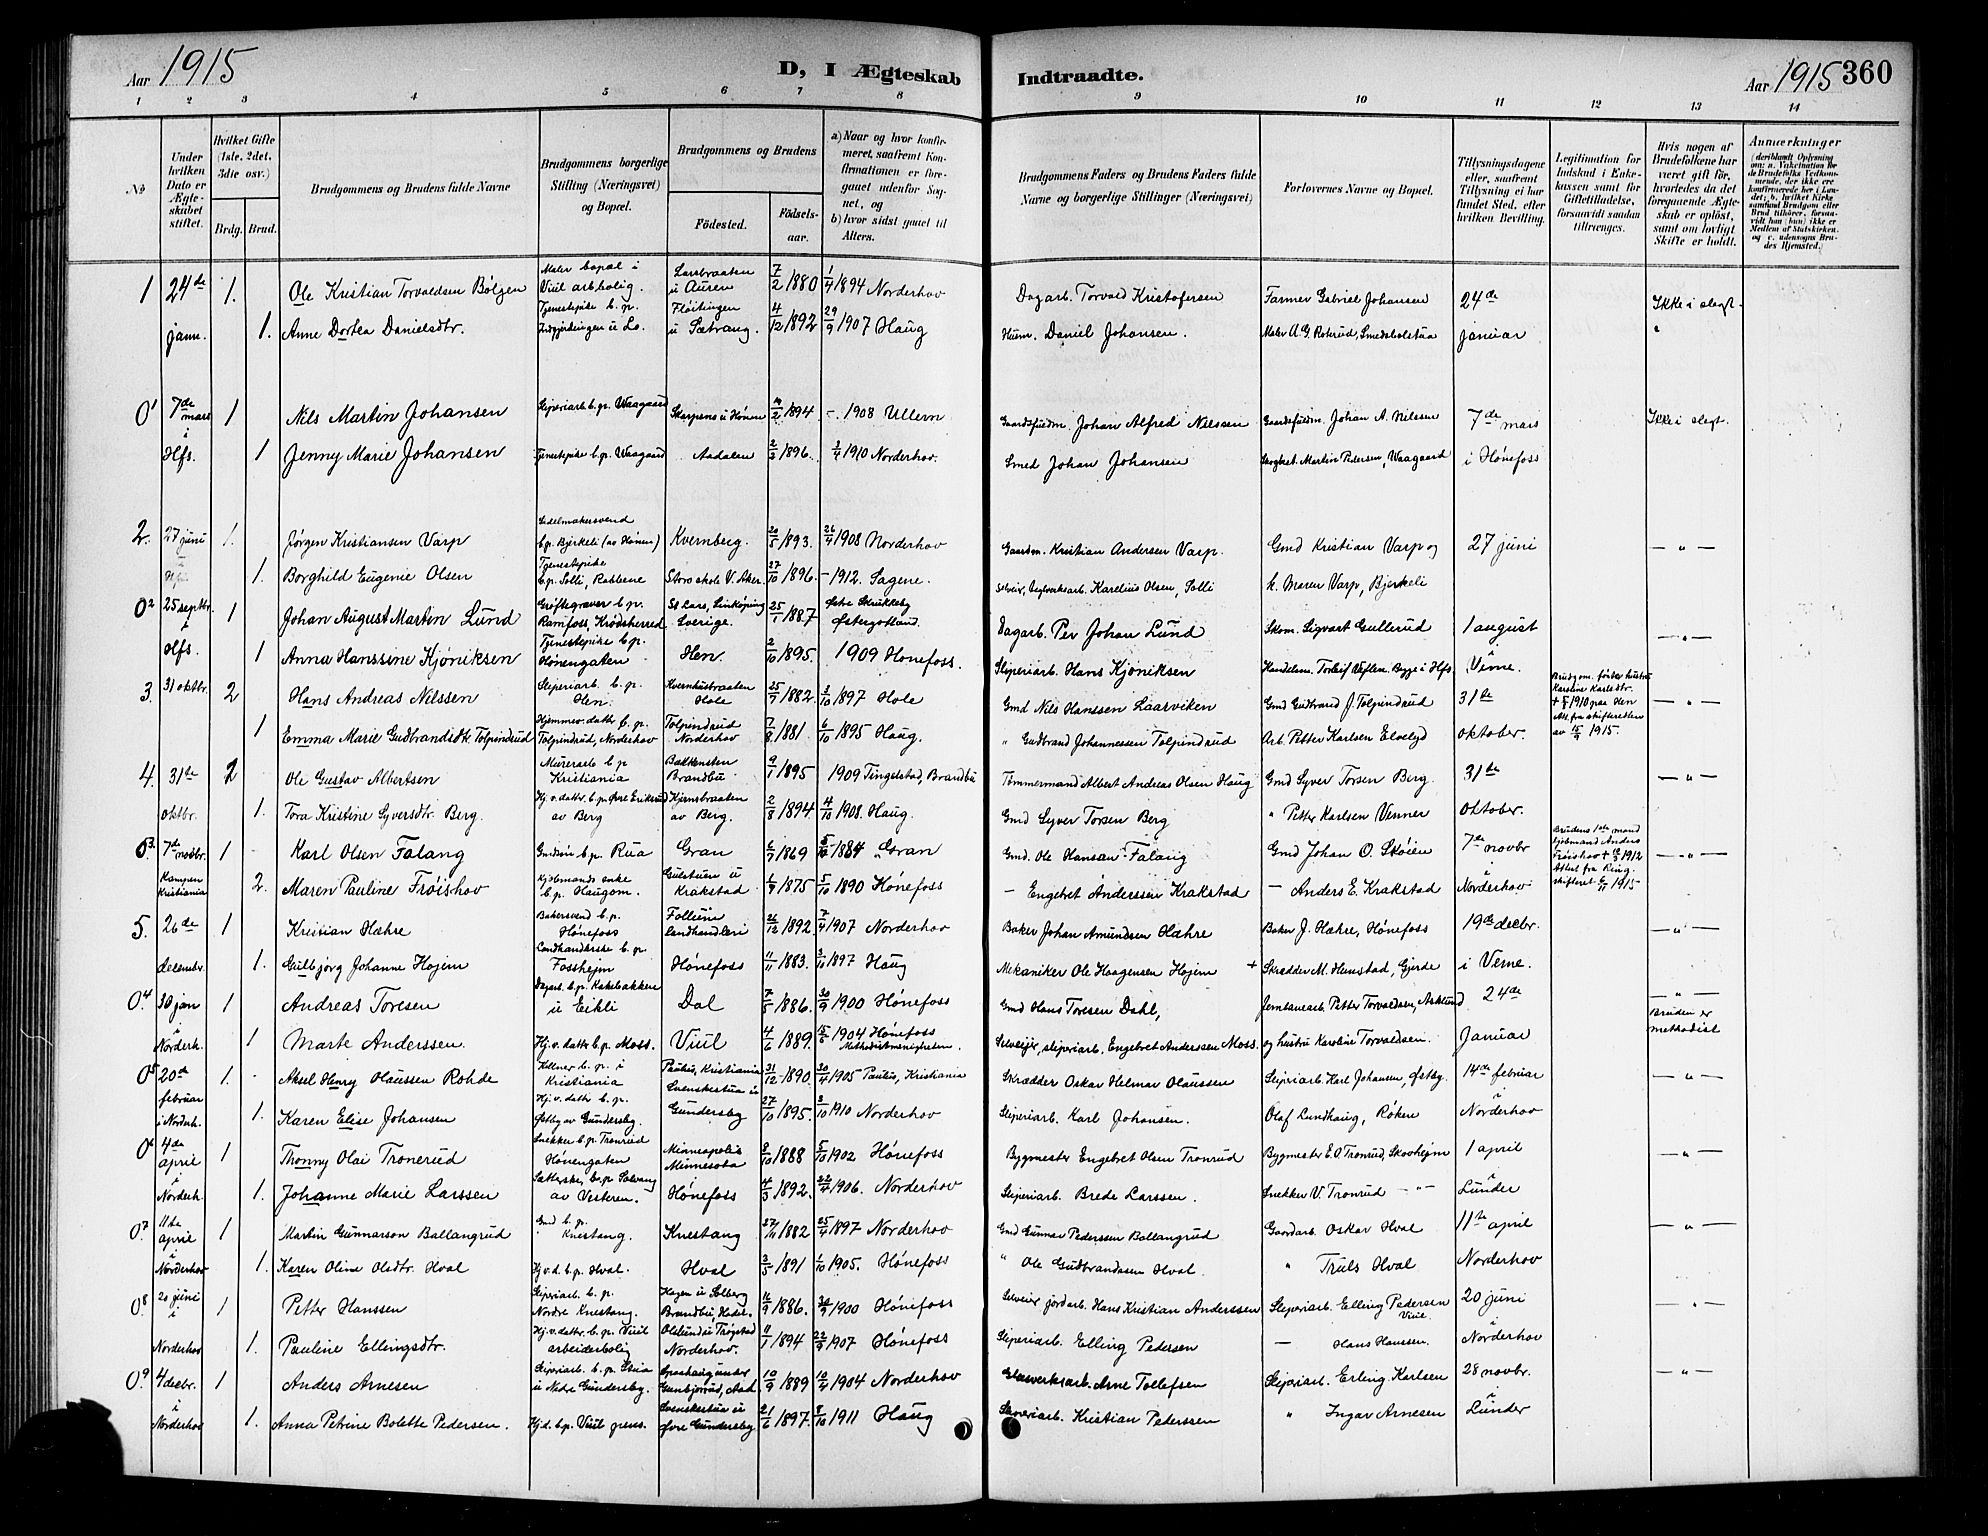 Aar 1915
D, I Ægteskab Indtraadte.
Aar 1915 360
1 2 3 4 5 6 7 8 9 10 11 12 13 14
No
Under hvilken Dato er Ægteskabet stiftet.
Hvilket Gifte (1ste, 2det, 3die osv.)
Brdg. Brud.
Brudgommens og Brudens fulde Navne
Brudgommens borgerlige Stilling (Næringsvei) og Bopæl.
Brudgommens og Brudens
Fødested.
Fødselsaar.
a) Naar og hvor konfirmeret, saafremt Konfirmationen er foregaaet udenfor Sognet, og
b) hvor sidst gaaet til Alters.
Brudgommens Faders og Brudens Faders fulde Navne og borgerlige Stillinger (Næringsvei)
Forlovernes Navne og Bopæl.
Tillysningsdagene eller, saafremt Tillysning ei har fundet Sted, efter hvilken Bevilling.
Legitimation for Indskud i Enkekassen samt for Giftetilladelse, forsaavidt saadan tiltrænges.
Hvis nogen af Brudefolkene har været gift før, hvorledes da det foregaaende Ægteskab er opløst, samt om lovligt Skifte er holdt.
Anmærkninger
1 24de 1. Ole Kristian Torvaldsen Bølgen Maler bopæl i Viul arb.bolig. Larsbraaten u Auren 7/2 1880 1/4 1894 Norderhov Dagarb. Torvald Kristofersen Farmer Gabriel Johansen 24de Ikke i slegt.
jann. 1. Anne Dortea Danielsdtr. Tjenestepike b.p. Fløitingen u Sætrang. 4/12 1892 29/9 1907 Haug Husm. Daniel Johansen. Maler A.G. Roterud, Smedsbolstua januar "
01 7de mars 1 Nils Martin Johansen Sliperiarb. b.p. Waagaard Skarpens u Hønen 1894 - 1908 Ullern Gaardsfuldm. Johan Alfred Nilssen Gaardsfuldm. Johan A. Nilssen 7de mars Ikke i slegt.
i Hfs. 1 Jenny Marie Johansen Tjenestepike b.p. Waagaard Aadalen 2/3 1896. 3/4 1910 Norderhov. Smed Johan Johansen Martin Pedersen, Waagaard i Hønefoss
2. 27 juni 1. Jørgen Kristiansen Varp Sadelmakersvend b.p. Bjerkeli (av Hønen) Kvernberg. 20/5 1893. 26/4 1908 Norderhov Gaardm. Kristian Andersen Varp. Gmd Kristian Varp og 27 juni — " —
1. Borghild Eugenie Olsen Tjenestepike b.p. Solli, Rabbene Storo skole V. Aker. 27/10 1896. - 1912. Sagene. Selveier, Karelius Olsen, Solli k. Maren Varp, Bjerkeli
02 25 septbr. i 1 Johan August Marten Lund Grøftegraver b.p. Ramfoss, Krødsherred St Lars, Linköping Sverige. 25/1 1887 Østre Skrukkeby Østergötland. Dagarb. Per Johan Lund Skom. Sigvart Gullerud 1 august — " —
Hfs. 1 Anna Hanssine Kjøniksen Tjenestepike b.p. Hønengaten Hen. 2/10 1895. 1909 Hønefoss. Sliperiarb. Hans Kjøniksen Handelsm. Torleif Bygge i Hfs i Verne.
3. 31 oktbr. 2 Hans Andreas Nilssen Sliperiarb. b.p. Hen. Kvernhusbraaten Hole 25/9 1882. 3/10 1897 Hole Gmd Nils Hanssen Laarviken Gmd Gudbrand J. Tolpinrud 31te Brudgom. første hustru Karoline Karlsdtr. + 1910 paa Hen Att. fra skifteretten av 15/9 1915. — " —
1 Emma Marie Gudbrandsdtr Tolpinrud Hjemmev. dattr b.p. Tolpinrud, Norderhov Tolpinrud Norderhov 7/8 1881 6/10 1895 Haug. " Gudbrand Johannessen Tolpinrud Arb. Petter Karlsen Elvelyd oktober.
4. 31te 2 Ole Gustav Albertsen Murerarb b.p Kristiania Bakkensten Brandbu 9/1 1895 1909 Tingelstad, Brandbu Tømmermand Albert Andreas Olsen Haug Gmd Syver Torsen Berg. 31te — " —
oktbr. 1. Tora Kristine Syversdtr. Berg. Hj. v. dattr. b.p. Øvre Eriksrud av Berg Kjernsbraaten av Berg. 2/8 1894. 4/10 1908. Haug. Gmd Syver Torsen Berg " Petter Karlsen Venner oktober.
03. 7de novbr. 1 Karl Olsen Falang b.p. Rua Gran 6/7 1869 5/10 1884 Gran Gmd. Ole Hansen Falang Gmd Johan O. Skøien 7de novbr Brudens 1ste mand kjøbmand Anders Frøishov + 1912 Attest fra Ring. skifteret 6/11 1915 — " —
Kampen Kristiania 2. Maren Pauline Frøishov Kjøbmands enke b.p. Haugom. Gulstuen u Krakstad 1/9 1875 5/10 1890 Hønefoss — Engebret Anderssen Krakstad — Anders E. Krakstad i Norderhov
5. 26de 1 Kristian Hæhre Bakersvend b.p. Hønefoss Follum landhandleri 26/12 1892 7/4 1907 Norderhov Baker Johan Amundsen Hæhre Baker J. Hæhre, Hønefoss 19de decbr. — " —
decembr. 1. Gulbjørg Johanne Hojem Landhandlerske b.p. Fossheim Hønefoss 11/11 1883. 3/10 1897 Haug Mekaniker Ole Haagensen Hojem + Skrædder M. Hemstad, Gjerde i Verne.
04 30 jan 1 Andreas Toresen Dagarb. b.p. Kakebakken u Eikli Dal 7/5 1886. 30/9 1900 Hønefoss Gmd Hans Toresen Dahl, Jernbanearb. Petter Torvaldsen, Asklund 24de — " — Bruden er methodist
i Norderh. 1 Marte Anderssen. Hj. v. dattr b.p. Moss. Viul 4/6 1889. 15/5 1904 Hønefoss Methodistmenigheten. Selveier, sliperiarb. Engebret Anderssen Moss. og hustru Karoline Torvaldsen. Januar
05 20de februar 1. Aksel Henry Olaussen Rohde Kellner b.p. i Kristiania Paulus, Kristiania 31/12 1890 30/4 1905 Paulus, Kristiania Skrædder Oskar Helmar Olaussen Sliperiarb. Karl Johansen, Østby. 14de februar — " —
i Norderh. 1. Karen Elise Johansen Hj. v. dattr b.p. Østby av Gundersby. Svenskestua u Gundersby 27/10 1895. 3/10 1910 Norderhov Sliperiarb. Karl Johansen. Olaf Lundhaug, Røken i Norderhov
06 4de april 1 Thonny Olai Tronerud Snekker b.p. Tronrud Hønengaten Minneapolis Minnesota 8/10 1888 5/10 1902 Hønefoss Bygmester Engebret Olsen Tronrud Bygmester E.O. Tronrud, Skovheim 1 april — " —
i Norderh. 1. Johanne Marie Larssen b.p. Solvang av Vesteren. Hønefoss 4/3 1892. 22/4 1906. Norderhov Sliperiarb. Brede Larssen. Snekker V. Tronrud — " — i Lunder
07 11te april 1 Martin Gunnarson Ballangrud Gmd b.p. Knestang. Knestang 27/11 1882 25/4 1897 Norderhov Gmd Gunnar Pederssen Ballangrud Gaardarb. Oskar Hval 11te april — " —
i Norderhov 1. Karen Oline Olsdtr. Hval Hj. v. d. b.p. Hval. Hval 3/5 1891 1/10 1905. Hønefoss " Ole Gudbrandsen Hval. " Truls Hval Norderhov
08 20 juni i 1 Petter Hanssen Sliperiarb. b.p. Nordre Knestang. Hagen u Solberg Brandbu, Hadel. 16/9 1886. 30/9 1900 Hønefoss Selveier jordarb. Hans Kristian Anderssen Sliperiarb. Elling Pedersen Viul. 20 juni — " —
Norderhov 1. Pauline Ellingsdtr. Hj. v. dattr. b.p. Viul arbeiderbolig Olslund u Trøgstad Norderhov. 11/1 1894 22/9 1907 Hønefoss Sliperiarb. Elling Pedersen — Hans Hanssen. i Norderhov
09 4 decbr. 1 Anders Arnesen Sliperiarb. b.p. Stua u Nedre Gundersby. Gunbjørud, Aad. 10/9 1889 10/4 1904 Norderhov Glasverksarb. Arne Tollefsen Sliperiarb. Erling Karlsen 28 novbr. — " —
i Norderhov 1. Anna Petrine Bolette Pedersen. Hj. d. b.p. Viul grens. Svenskestua u Øvre Gundersby 21/6 1897. 8/10 1911 Haug Sliperiarb. Kristian Pederssen " Ingar Arnesen i Lunder